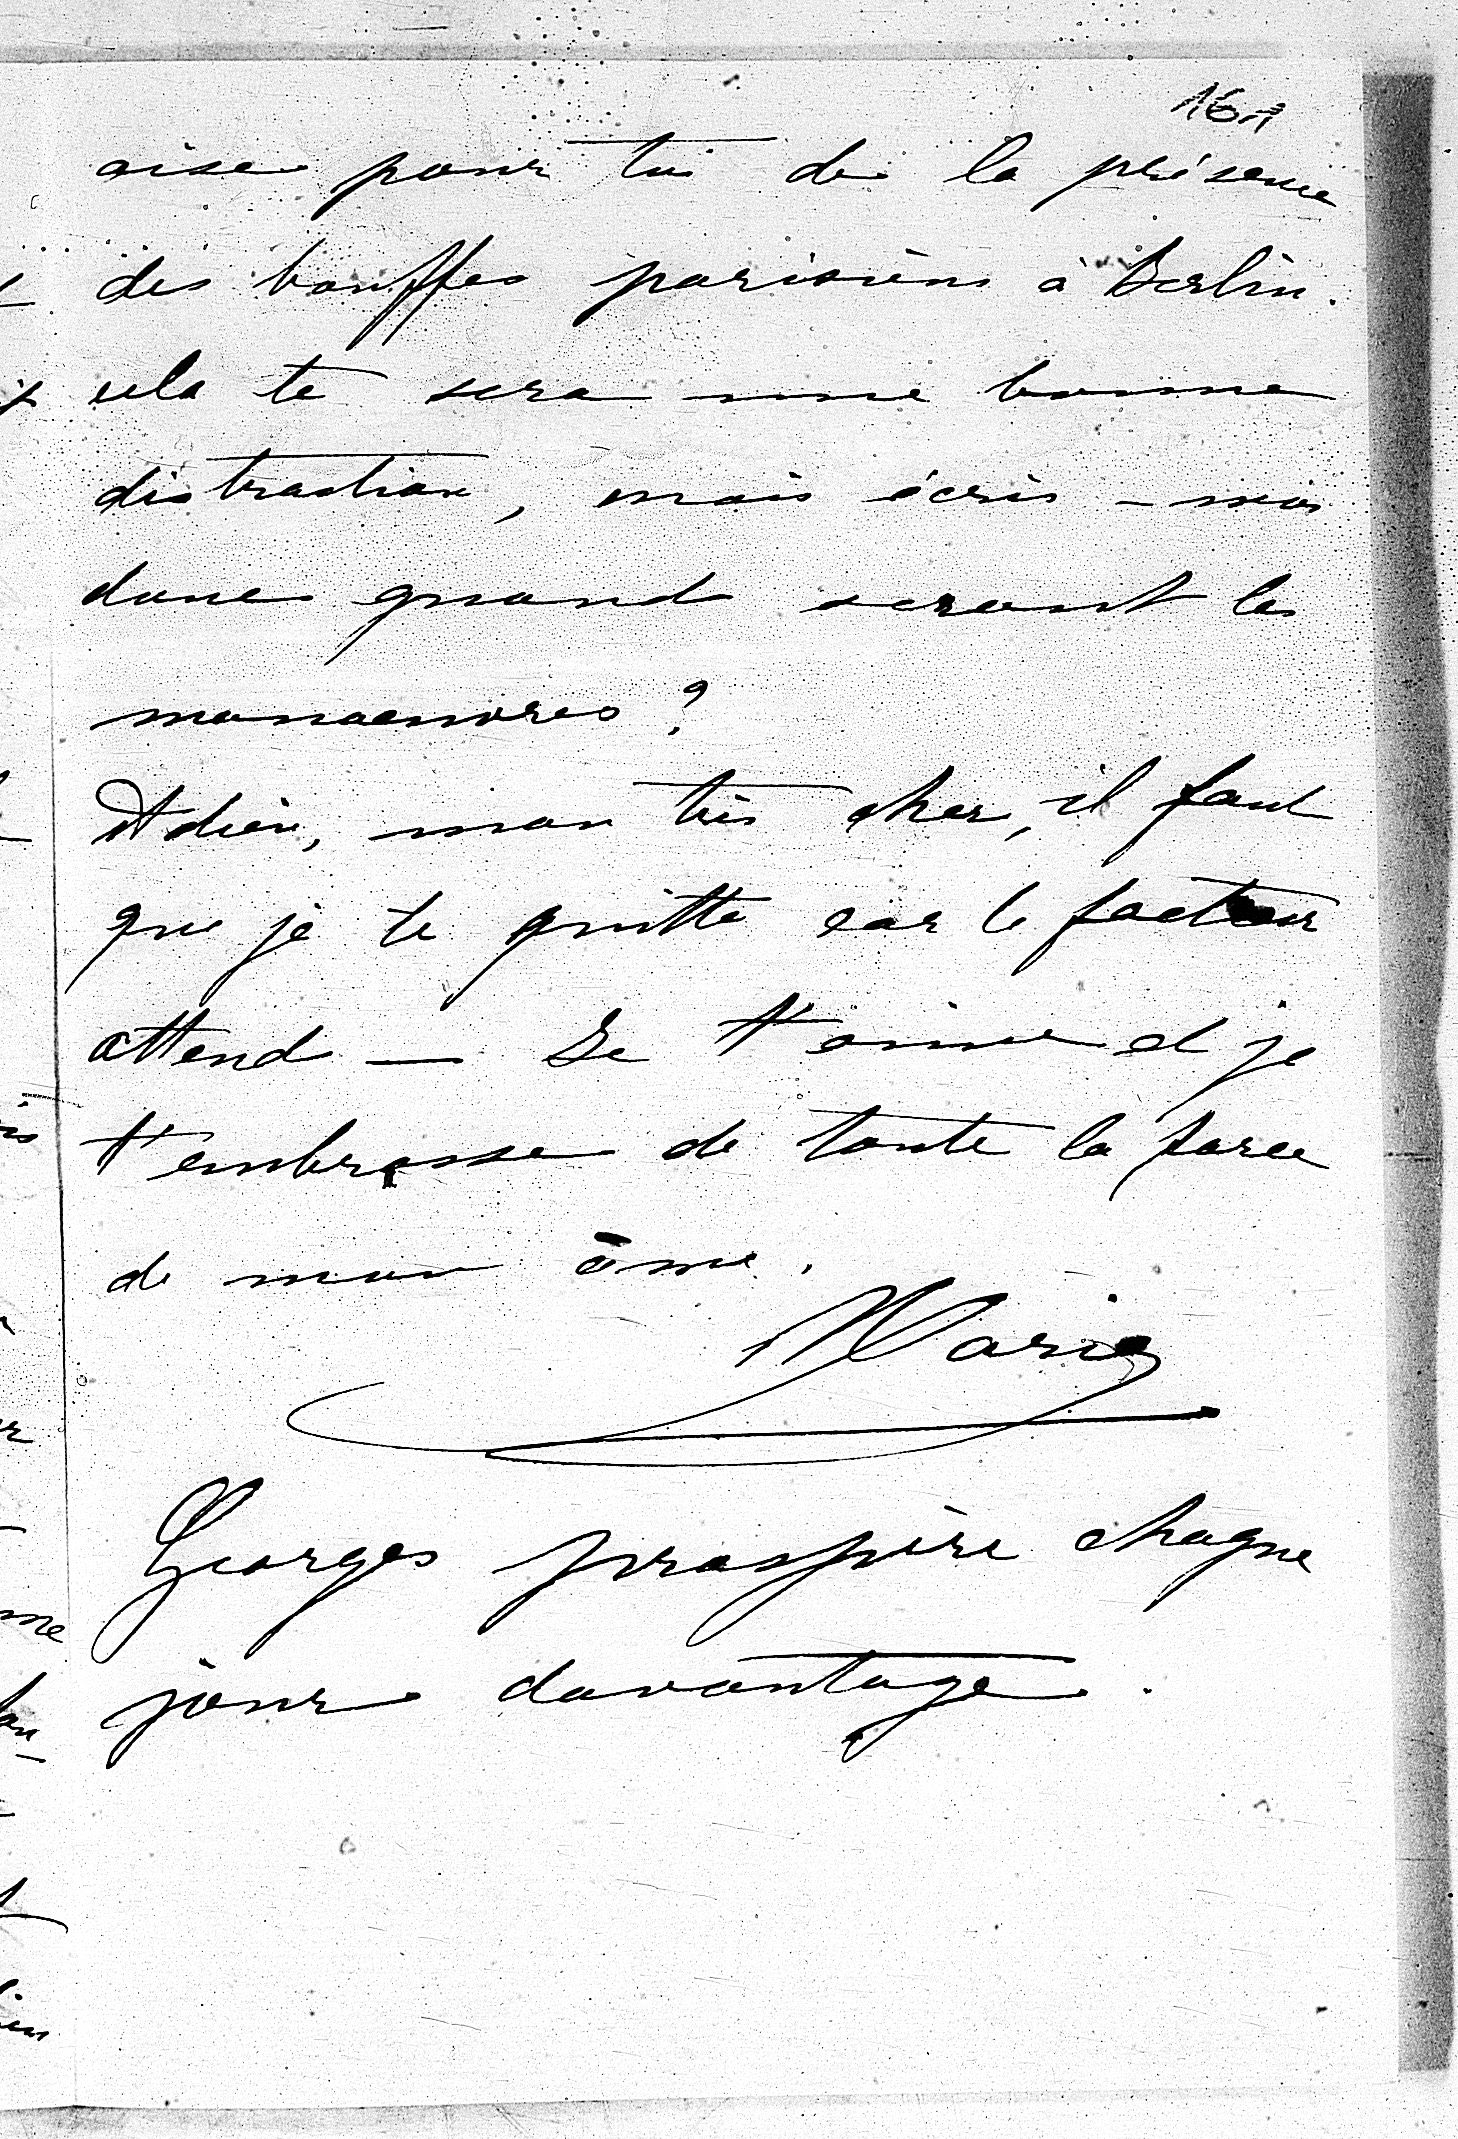 aise pour toi de la présence
des bouffes parisiens à Berlin.
cela te sera une bonne
distraction, mais écris-moi
donc quand seront les
manoeuvres ?
Adieu, mon très cher, il faut
que je te quitte car le facteur
attend — Je t'aime et je
t'embrasse de toute la force
de mon âme.
Marie
Georges prospère chaque
jour davantage.